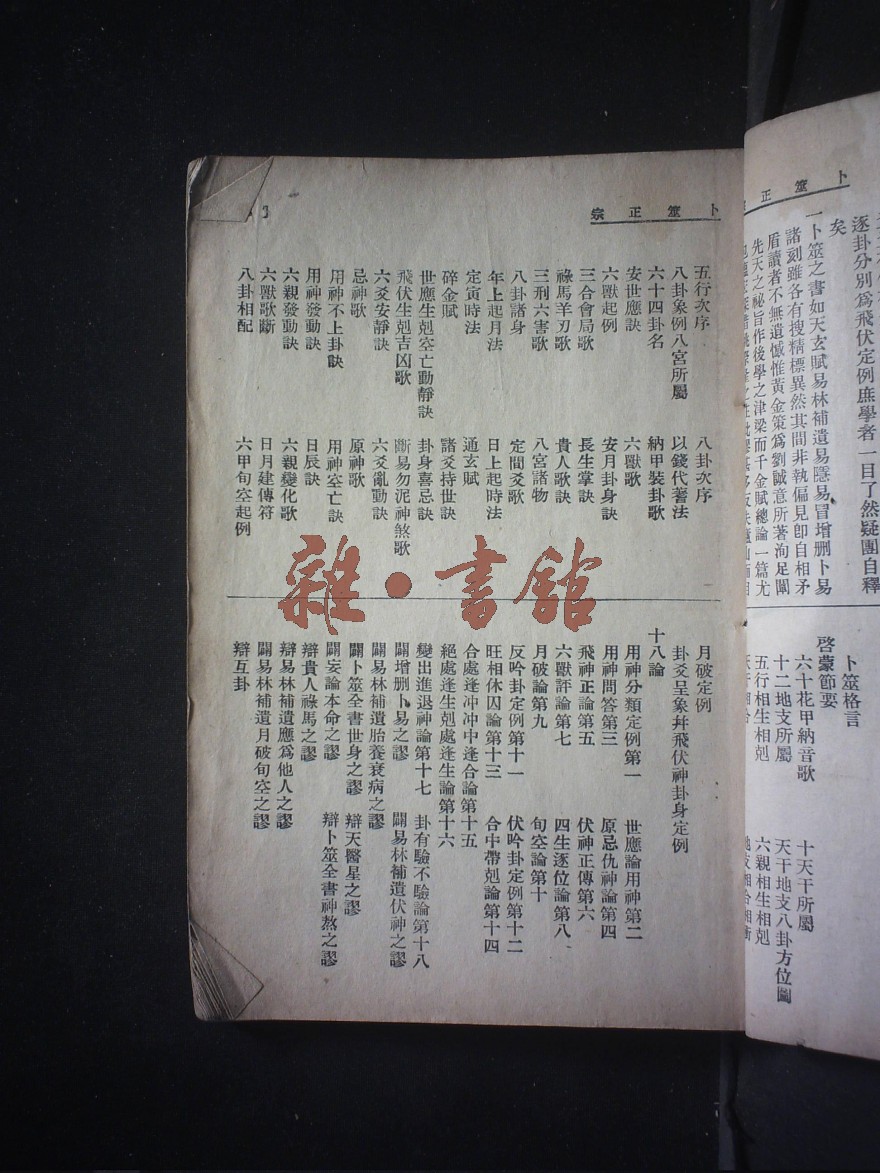 卜筮正
逐卦分別爲飛伏定例庶學者一目了然疑團自釋
矣
一卜筮之書如天玄賦易林補遺易隱易冒增刪卜易
諸刻雖各有搜精標異然其間非執偏見卽自相矛
盾讀者不無遺憾惟黃金策爲劉誠意所著洵足闡
先天之祕旨作後學之津梁而千金賦總論一篇尤
卜筮格言
啓蒙節要
六十花甲納音歌 十天干所屬
十二地支所屬 天干地支八卦方位圖
五行相生相剋 六親相生相剋
卜筮正宗
五行次序 八卦次序
八卦象例八宮所屬 以錢代蓍法
六十四卦名 納甲裝卦歌
安世應訣 六獸歌
六獸起例 安月卦身訣
三合會局歌 長生掌訣
祿馬羊刃歌 貴人歌訣
三刑六害歌 八宮諸物
八卦諸身 定間爻歌
年上起月法 日上起時法
定寅時法 通玄賦
碎金賦 諸爻持世訣
世應生剋空亡動靜訣 卦身喜忌訣
飛伏生剋吉凶歌 斷易勿泥神煞歌
六爻安靜訣 六爻亂動訣
忌神歌 原神歌
用神不上卦訣 用神空亡訣
用神發動訣 日辰訣
六親發動訣 六親變化歌
六獸歌斷 日月建傳符
八卦相配 六甲旬空起例
月破定例
卦爻呈象幷飛伏神卦身定例
十八論
用神分類定例第一 世應論用神第二
用神問答第三 原忌仇神論第四
飛神正論第五 伏神正傳第六
六獸評論第七 四生逐位論第八
月破論第九 旬空論第十
反吟卦定例第十一 伏吟卦定例第十二
旺相休囚論第十三 合中帶剋論第十四
合處逢冲冲中逢合論第十五
絕處逢生剋處逢生論第十六
變出進退神論第十七 卦有驗不驗論第十八
闢增刪卜易之謬 闢易林補遺伏神之謬
闢易林補遺胎養衰病之謬
闢卜筮全書世身之謬 辯天醫星之謬
闢妄論本命之謬 辯卜筮全書神煞之謬
辯貴人祿馬之謬
辯易林補遺應爲他人之謬
闢易林補遺月破旬空之謬
辯互卦
雜·書館